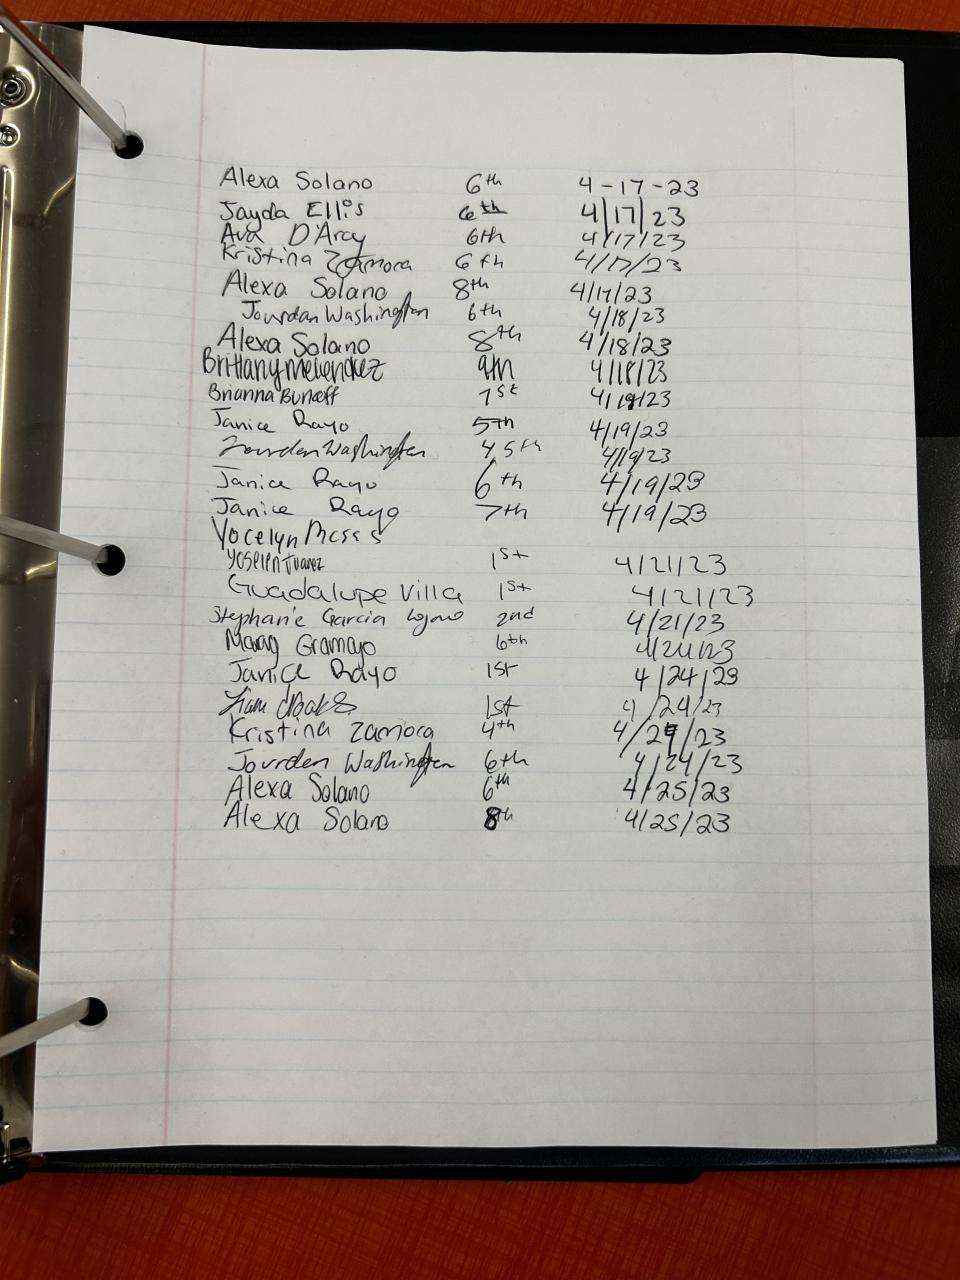 Alexa Solano 6th 4-17-23
Jayda Ellis 6th 4/17/23
Ava D'Arcy 6th 4/17/23
Kristina Zamora 6th 4/17/23
Alexa Solano 8th 4/17/23
Jourdan Washington 6th 4/18/23
Alexa Solano 8th 4/18/23
Brittany Melendez 4/18/23
Brianna 1st 4/19/23
Janice Rayo 5th 4/19/23
Jourden Washington 4 5th 4/19/23
Janice Rayo 6th 4/19/23
Janice Rayo 7th 4/19/23
Yocelyn
Yoselin Juarez 1st 4/21/23
Guadalupe Villa 1st 4/21/23
Stephanie Garcia 2nd 4/21/23
Gramajo 6th 4/21/23
Janice Rayo 1st 4/24/23
1st 4/24/23
Kristina Zamora 4th 4/24/23
Jourden Washington 6th 4/24/23
Alexa Solano 6th 4/25/23
Alexa Solano 8th 4/25/23